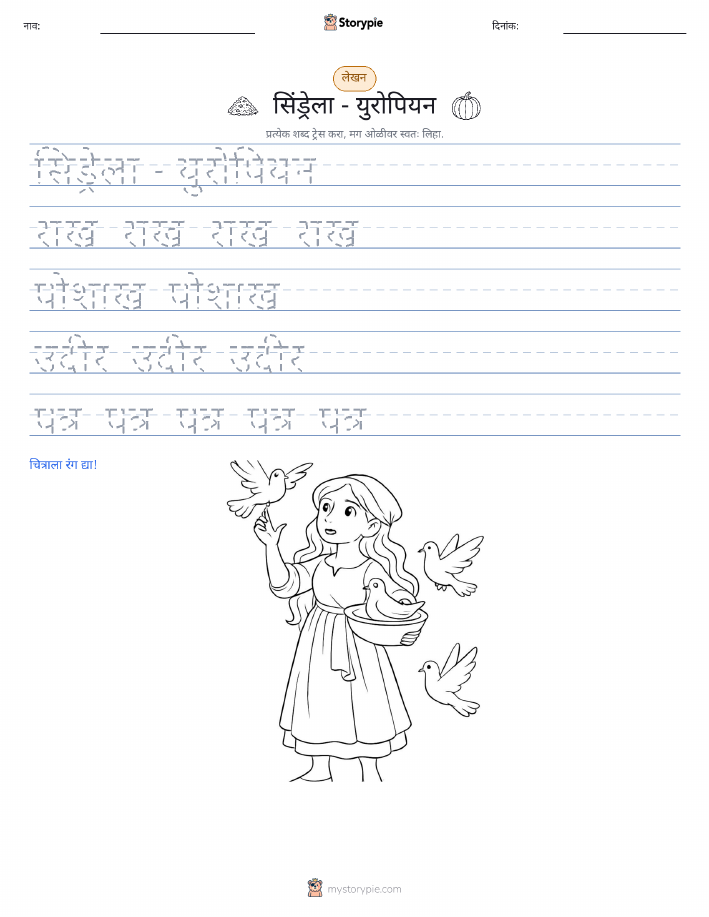 नाव: Storypie दिनांक:
लेखन
सिंड्रेला - युरोपियन
प्रत्येक शब्द ट्रेस करा, मग ओळीवर स्वतः लिहा.
सिंड्रेला - युरोपियन
राख राख राख राख
पोशाख पोशाख
उंदीर उंदीर उंदीर
पत्र पत्र पत्र पत्र पत्र
चित्राला रंग द्या!
mystorypie.com